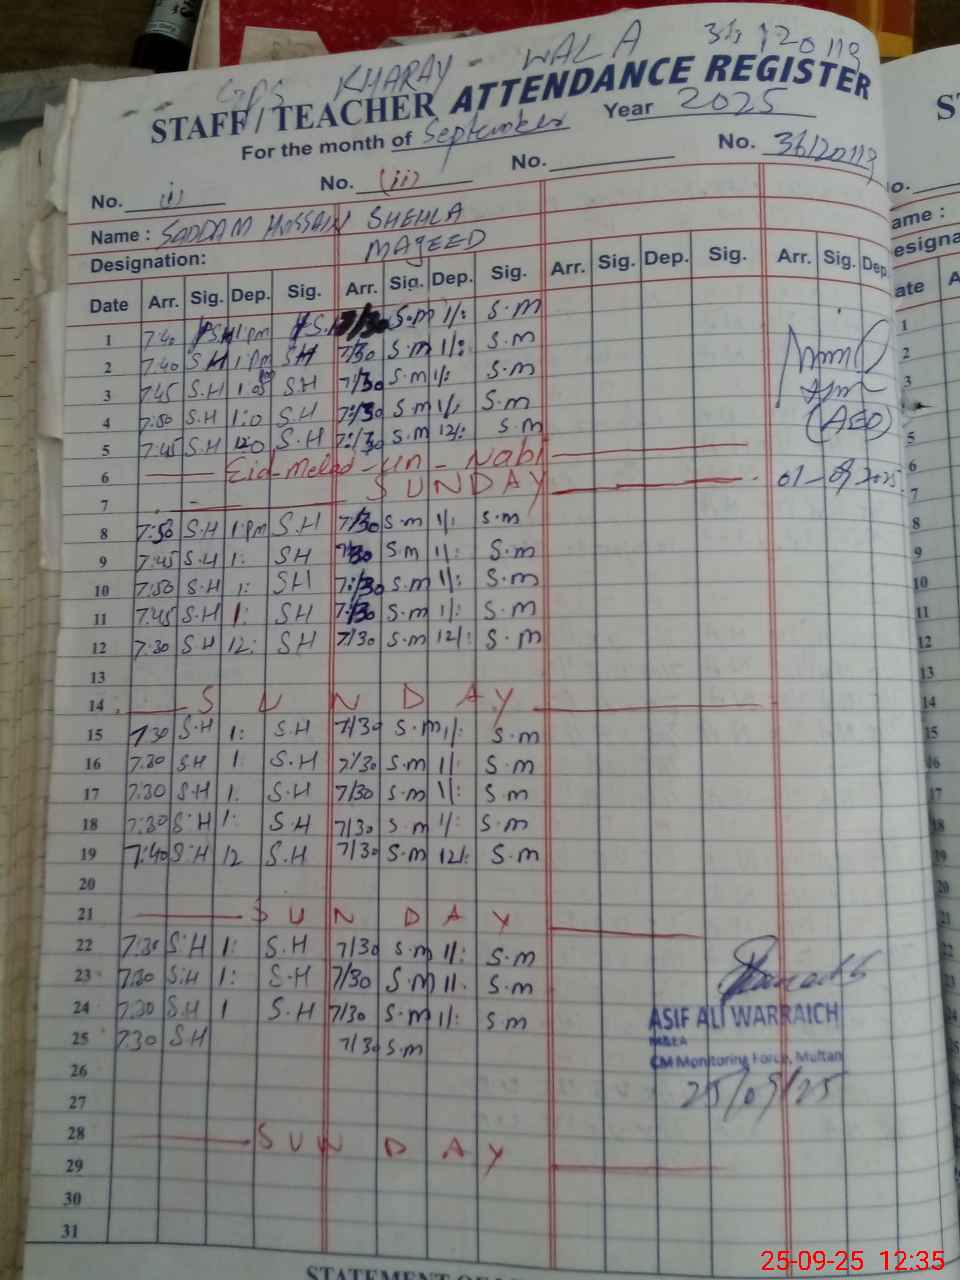 GPS KHARAY - WALA 36120119
STAFF/TEACHER ATTENDANCE REGISTER
For the month of September Year 2025
No. (i) No. (ii) No. No. 36120119
Name : SADDAM HUSSAIN SHEHLA
Designation: MAJEED
Date Arr. Sig. Dep. Sig. Arr. Sig. Dep. Sig. Arr. Sig. Dep. Sig. Arr. Sig. Dep.
1 7:40 S.H 1:pm S.H 7/30 S.m 1/: S.m
2 7:40 S.H 1:pm SH 7/30 S.m 1/: S.m
3 7:45 S.H 1:05 S.H 7/30 S.m 1/: S.m
4 7:50 S.H 1:0 S.H 7:/30 S.m 1/: S.m
5 7:45 S.H 12:0 S.H 7:/30 S.m 12/: S.m
(AEO)
6 Eid-Melad-un-Nabi
7 SUNDAY 01-09-2025
8 7:50 S.H 1:pm S.H 7/30 S.m 1/: S.m
9 7:45 S.H 1: SH 7/30 S.m 1/: S.m
10 7:50 S.H 1: SH 7:/30 S.m 1/: S.m
11 7:45 S.H 1: SH 7:/30 S.m 1/: S.m
12 7:30 S.H 12: SH 7/30 S.m 12/: S.m
13
14 SUNDAY
15 7:30 S.H 1: S.H 7/30 S.m 1/: S.m
16 7:30 S.H 1: S.H 7/30 S.m 1/: S.m
17 7:30 S.H 1: S.H 7/30 S.m 1/: S.m
18 7:30 S.H 1: S.H 7/30 S.m 1/: S.m
19 7:40 S.H 12 S.H 7/30 S.m 12/: S.m
20
21 SUNDAY
22 7:30 S.H 1: S.H 7/30 S.m 1/: S.m
23 7:30 S.H 1: S.H 7/30 S.m 1/: S.m
24 7:30 S.H 1 S.H 7/30 S.m 1/: S.m
ASIF ALI WARRAICH
25 7:30 S.H 7/30 S.m
MEA
CM Monitoring Force, Multan
26
25/09/25
27
28 SUNDAY
29
30
31
25-09-25 12:35